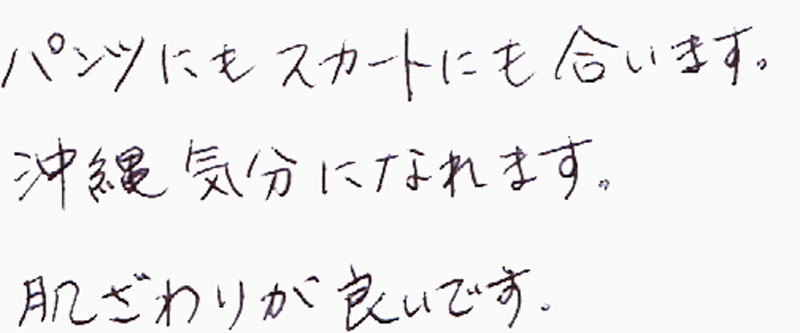 パンツにもスカートにも合います。
沖縄気分になれます。
肌ざわりが良いです。